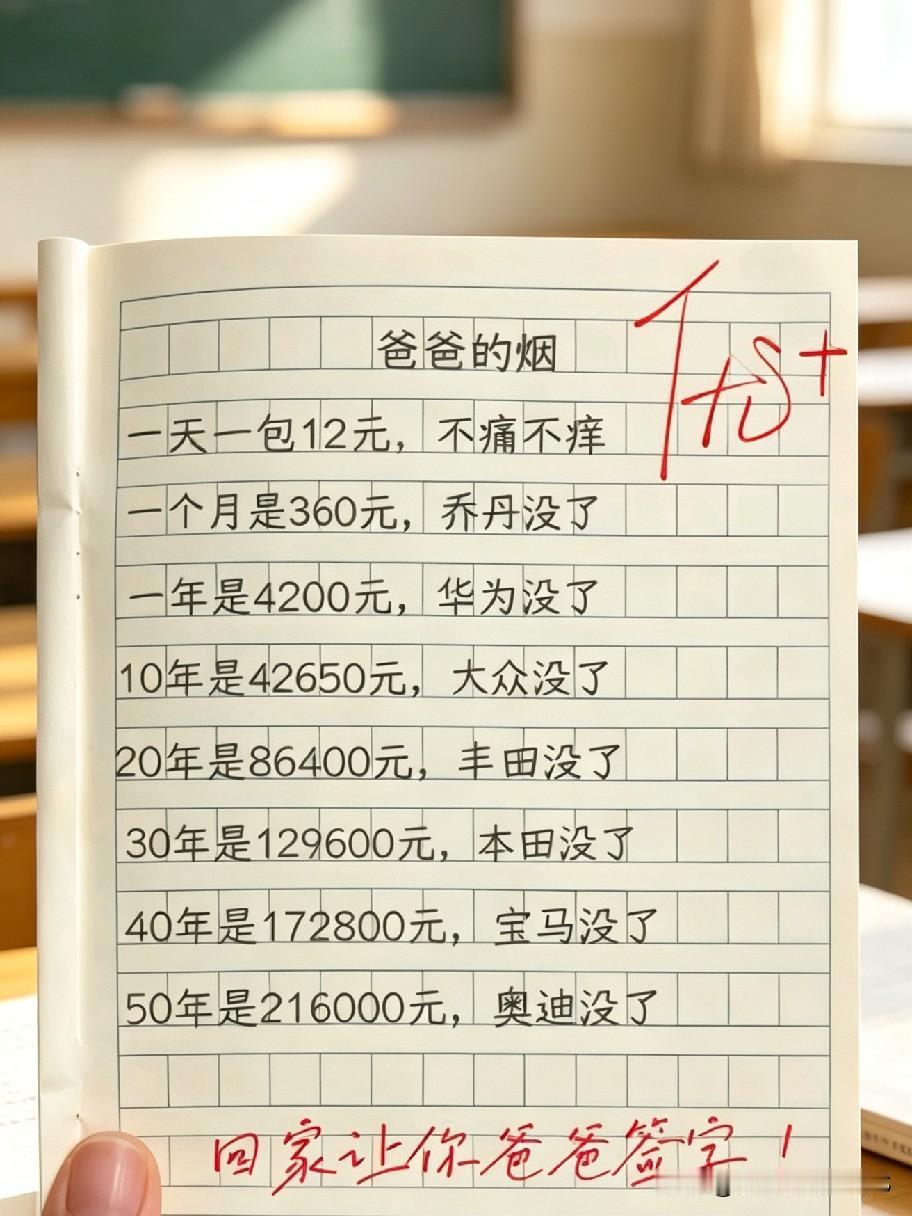 爸爸的烟
一天一包12元，不痛不痒
一个月是360元，乔丹没了
一年是4200元，华为没了
10年是42650元，大众没了
20年是86400元，丰田没了
30年是129600元，本田没了
40年是172800元，宝马没了
50年是216000元，奥迪没了
回家让你爸爸签字！